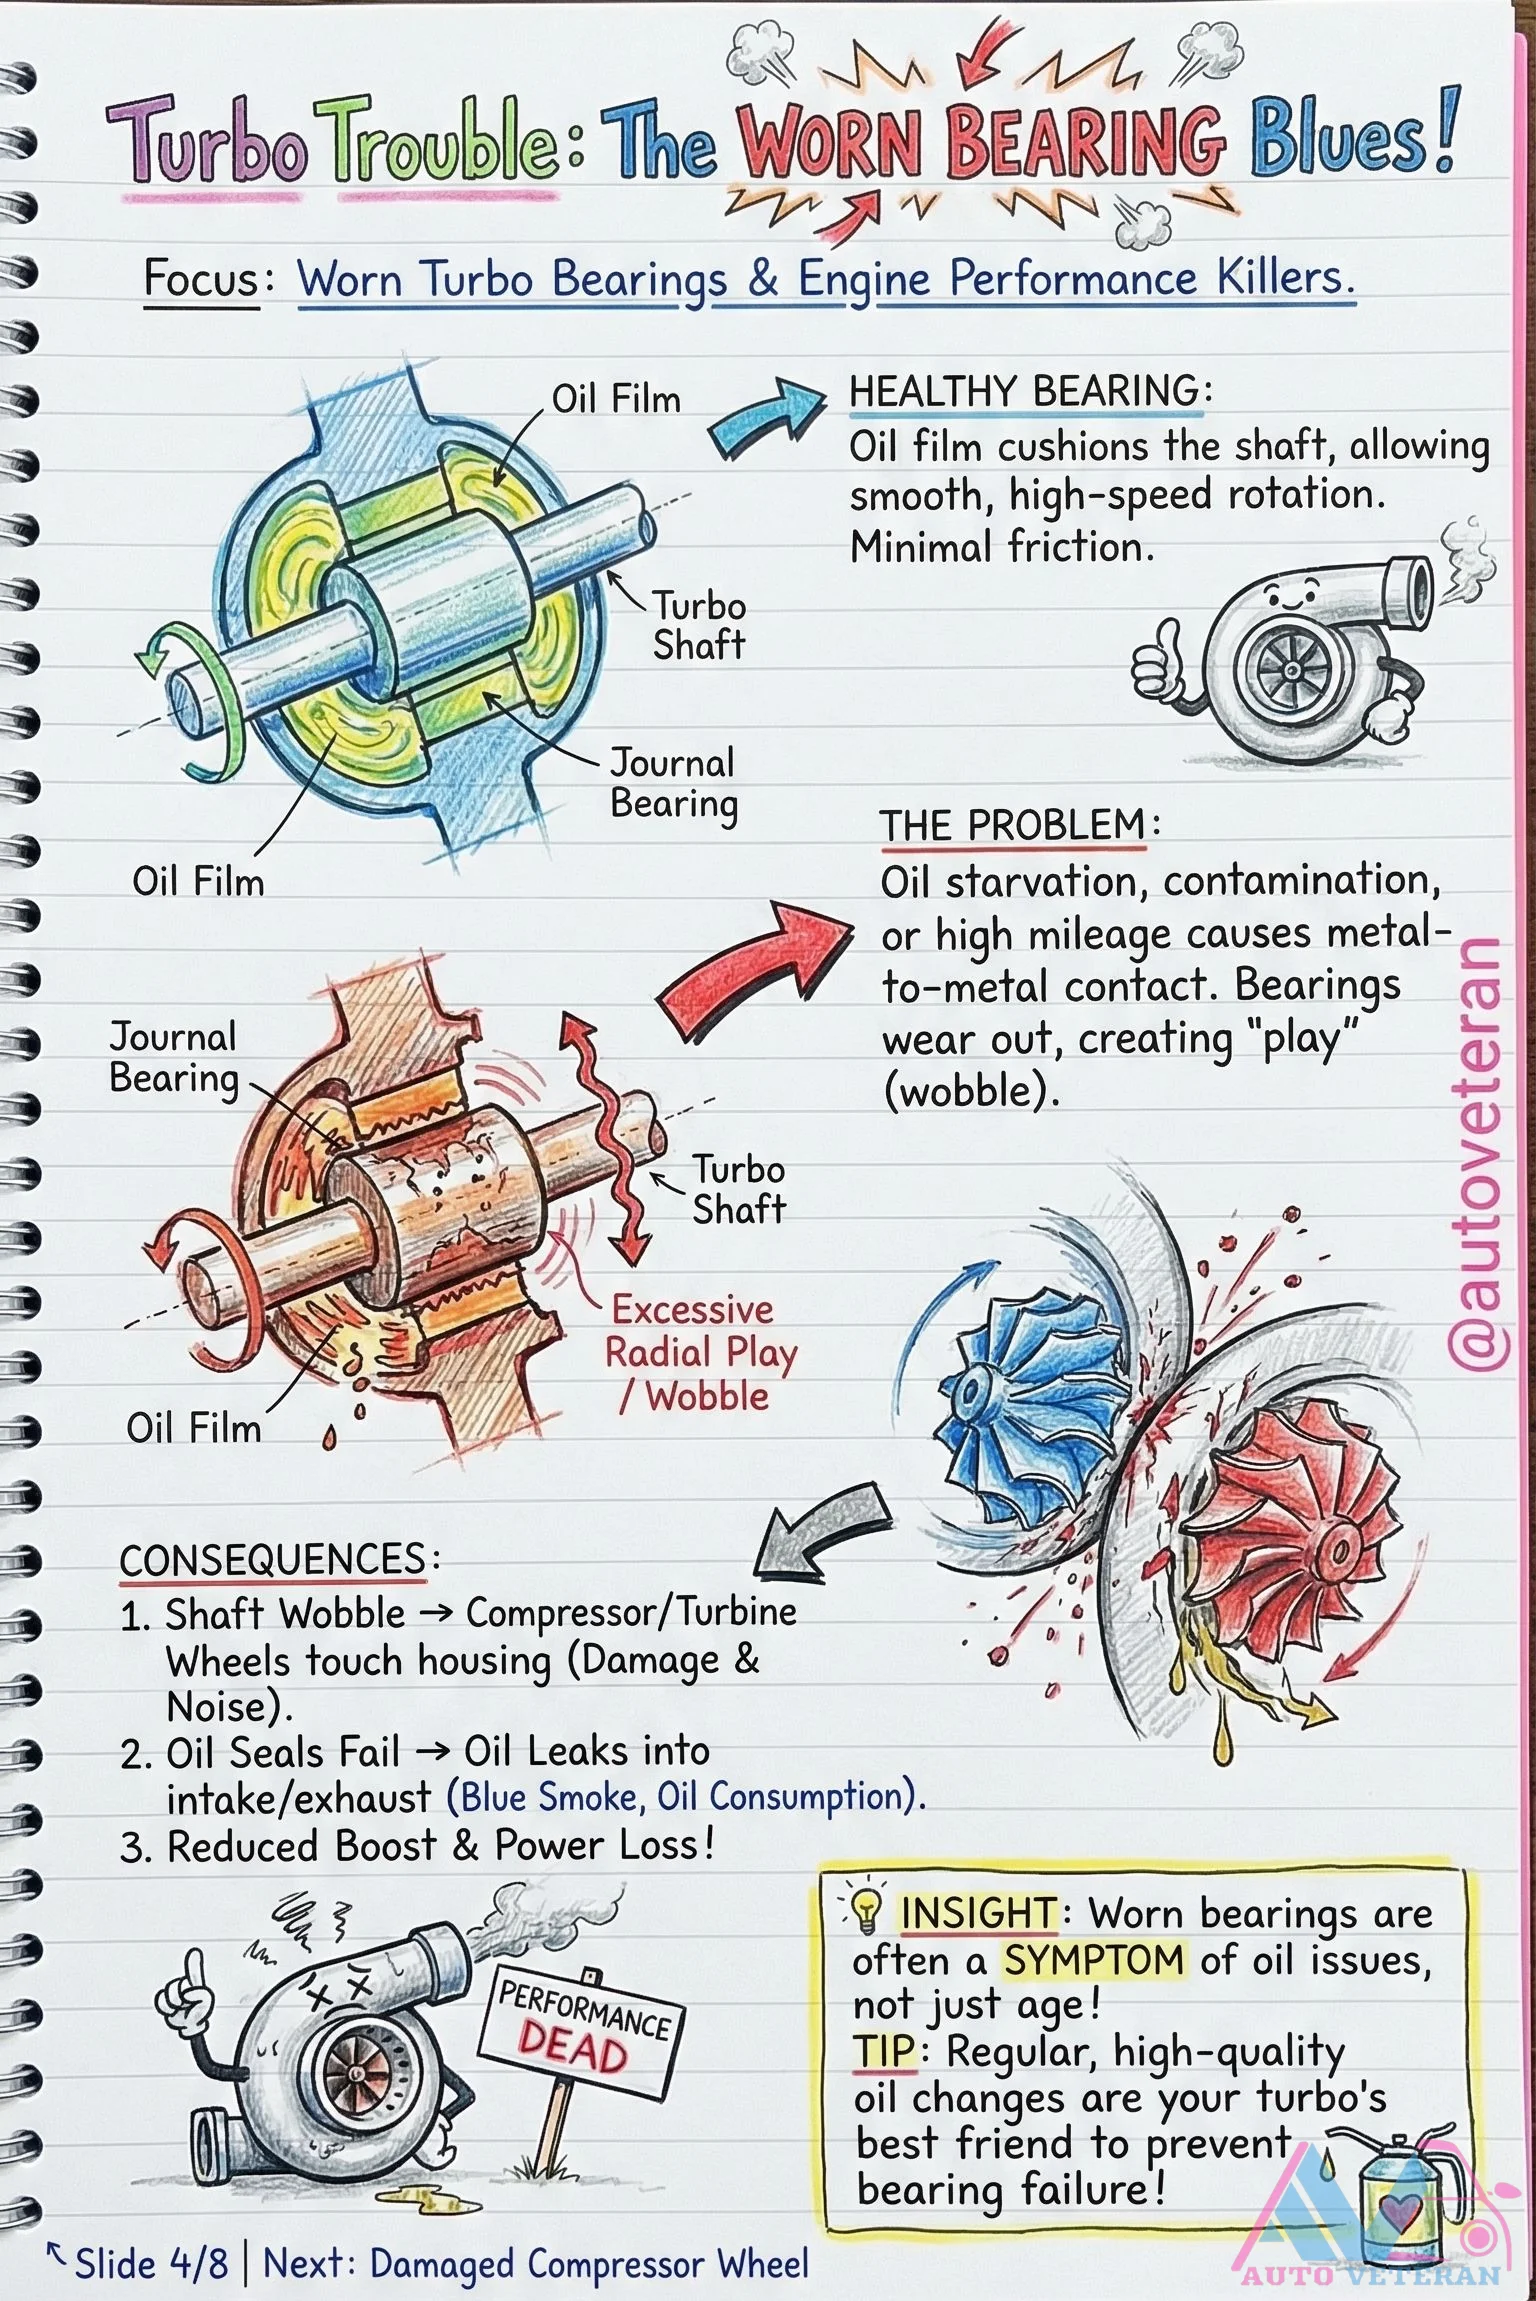 Turbo Trouble: The WORN BEARING Blues!
Focus: Worn Turbo Bearings & Engine Performance Killers.
Oil Film
HEALTHY BEARING:
Oil film cushions the shaft, allowing
smooth, high-speed rotation.
Minimal friction.
Turbo
Shaft
Journal
Bearing
Oil Film
THE PROBLEM:
Oil starvation, contamination,
or high mileage causes metal-
to-metal contact. Bearings
wear out, creating "play"
(wobble).
Journal
Bearing
Turbo
Shaft
Excessive
Radial Play
/ Wobble
Oil Film
@autoveteran
CONSEQUENCES:
1. Shaft Wobble → Compressor/Turbine
Wheels touch housing (Damage &
Noise).
2. Oil Seals Fail → Oil Leaks into
intake/exhaust (Blue Smoke, Oil Consumption).
3. Reduced Boost & Power Loss!
PERFORMANCE
DEAD
INSIGHT: Worn bearings are
often a SYMPTOM of oil issues,
not just age!
TIP: Regular, high-quality
oil changes are your turbo's
best friend to prevent
bearing failure!
Slide 4/8 | Next: Damaged Compressor Wheel
AUTO VETERAN